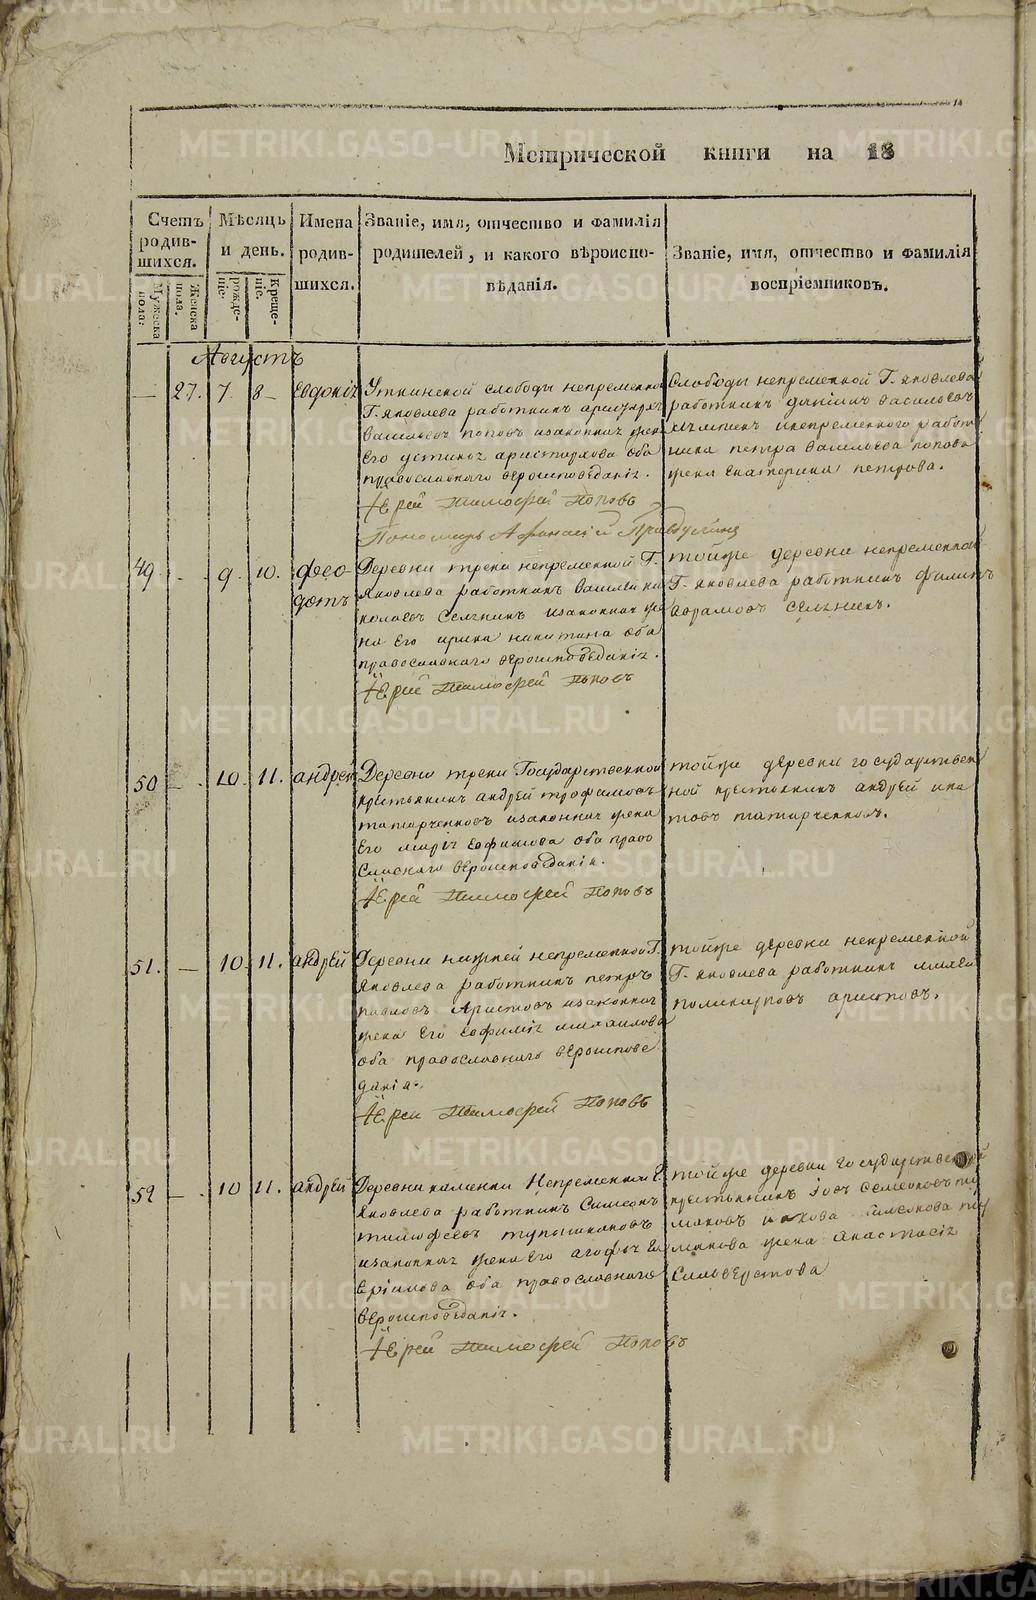 Метрической книги на 18
Счетъ родив-шихся.
Мужеска пола.
Женска пола.
Мѣсяцъ и день.
рожде-ніе.
Креще-ніе.
Имена родив-шихся.
Званіе, имя, отчество и фамилія
родителей, и какого вѣроиспо-
вѣданія.
Званіе, имя, отчество и фамилія
воспріемниковъ.
Августъ
— 27. 7. 8 Евдокія
Уткинской слободы непременной
Г. Яковлева работникъ
Васильевъ Поповъ изаконная жена
Его устинья аристархова оба
православнаго вероисповеданія.
Іерей Тимофей Поповъ
Пономарь Афанасій
Слободы непременной Г. Яковлева
работникъ Данило васильевъ
инепременного работ
ника петра васильева попова
жена Екатерина петрова.
49 - 9. 10. Фео-
дотъ
Деревни треки непременной Г.
Яковлева работникъ Василей ни
колаевъ Селянинъ изаконная же
на Его ирина никитина оба
православнаго вероисповеданія.
Іерей Тимофей Поповъ
тойже деревни непременной
Г. Яковлева работникъ Филипъ
аврамовъ
50 - 10. 11. андрей
Деревни треки Государственной
крестьянинъ андрей трофимовъ
татарченковъ изаконная жена
Его марья Ефимова оба право
славнаго вероисповеданія.
Іерей Тимофей Поповъ
тойже деревни государствен
ной крестьянинъ андрей ипа
товъ татарченковъ.
51. — 10. 11. андрей
Деревни нижней непременной Г.
Яковлева работникъ петръ
павловъ Аристовъ изаконная
жена Его Евфимія михаилова
оба православнаго вероиспове
данія.
Іерей Тимофей Поповъ
тойже деревни непременной
Г. Яковлева работникъ
поликарповъ аристовъ.
52 — 10 11. андрей
Деревни каменки Непременной Г.
Яковлева работникъ Симеонъ
тимофеевъ
изаконная жена Его агафья
оба православнаго
вероисповеданія.
Іерей Тимофей Поповъ
тойже деревни государственной
крестьянинъ
жена Анастасія
Сильверстова
METRIKI.GASO-URAL.RU